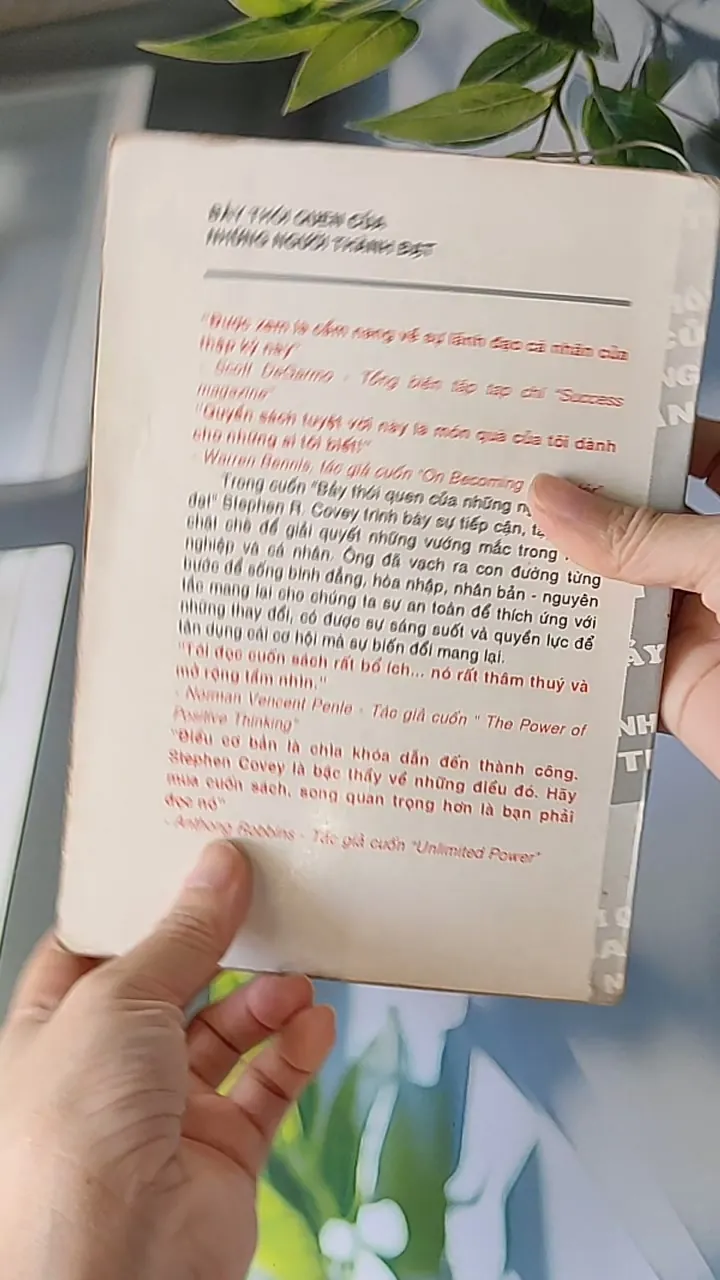 BẢY THÓI QUEN CỦA
NHỮNG NGƯỜI THÀNH ĐẠT
"Được xem là cẩm nang về sự lãnh đạo cá nhân của
thập kỷ này"
- Scott DeGarmo - Tổng biên tập tạp chí "Success
magazine"
"Quyển sách tuyệt vời này là món quà của tôi dành
cho những ai tôi biết!"
- Warren Bennis, tác giả cuốn "On Becoming
Trong cuốn "Bảy thói quen của những
đạt" Stephen R. Covey trình bày sự tiếp cận,
chặt chẽ để giải quyết những vướng mắc trong
nghiệp và cá nhân. Ông đã vạch ra con đường từng
bước để sống bình đẳng, hòa nhập, nhân bản - nguyên
tắc mang lại cho chúng ta sự an toàn để thích ứng với
những thay đổi, có được sự sáng suốt và quyền lực để
tận dụng cái cơ hội mà sự biến đổi mang lại.
"Tôi đọc cuốn sách rất bổ ích... nó rất thâm thuý và
mở rộng tầm nhìn."
- Norman Vencent Penle - Tác giả cuốn " The Power of
Positive Thinking"
"Điều cơ bản là chìa khóa dẫn đến thành công.
Stephen Covey là bậc thầy về những điều đó. Hãy
mua cuốn sách, song quan trọng hơn là bạn phải
đọc nó"
- Anthony Robbins - Tác giả cuốn "Unlimited Power"